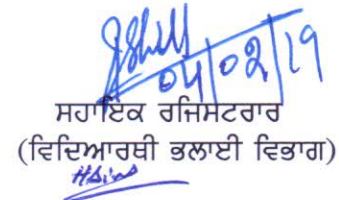 04/02/19
ਸਹਾਇਕ ਰਜਿਸਟਰਾਰ
(ਵਿਦਿਆਰਥੀ ਭਲਾਈ ਵਿਭਾਗ)